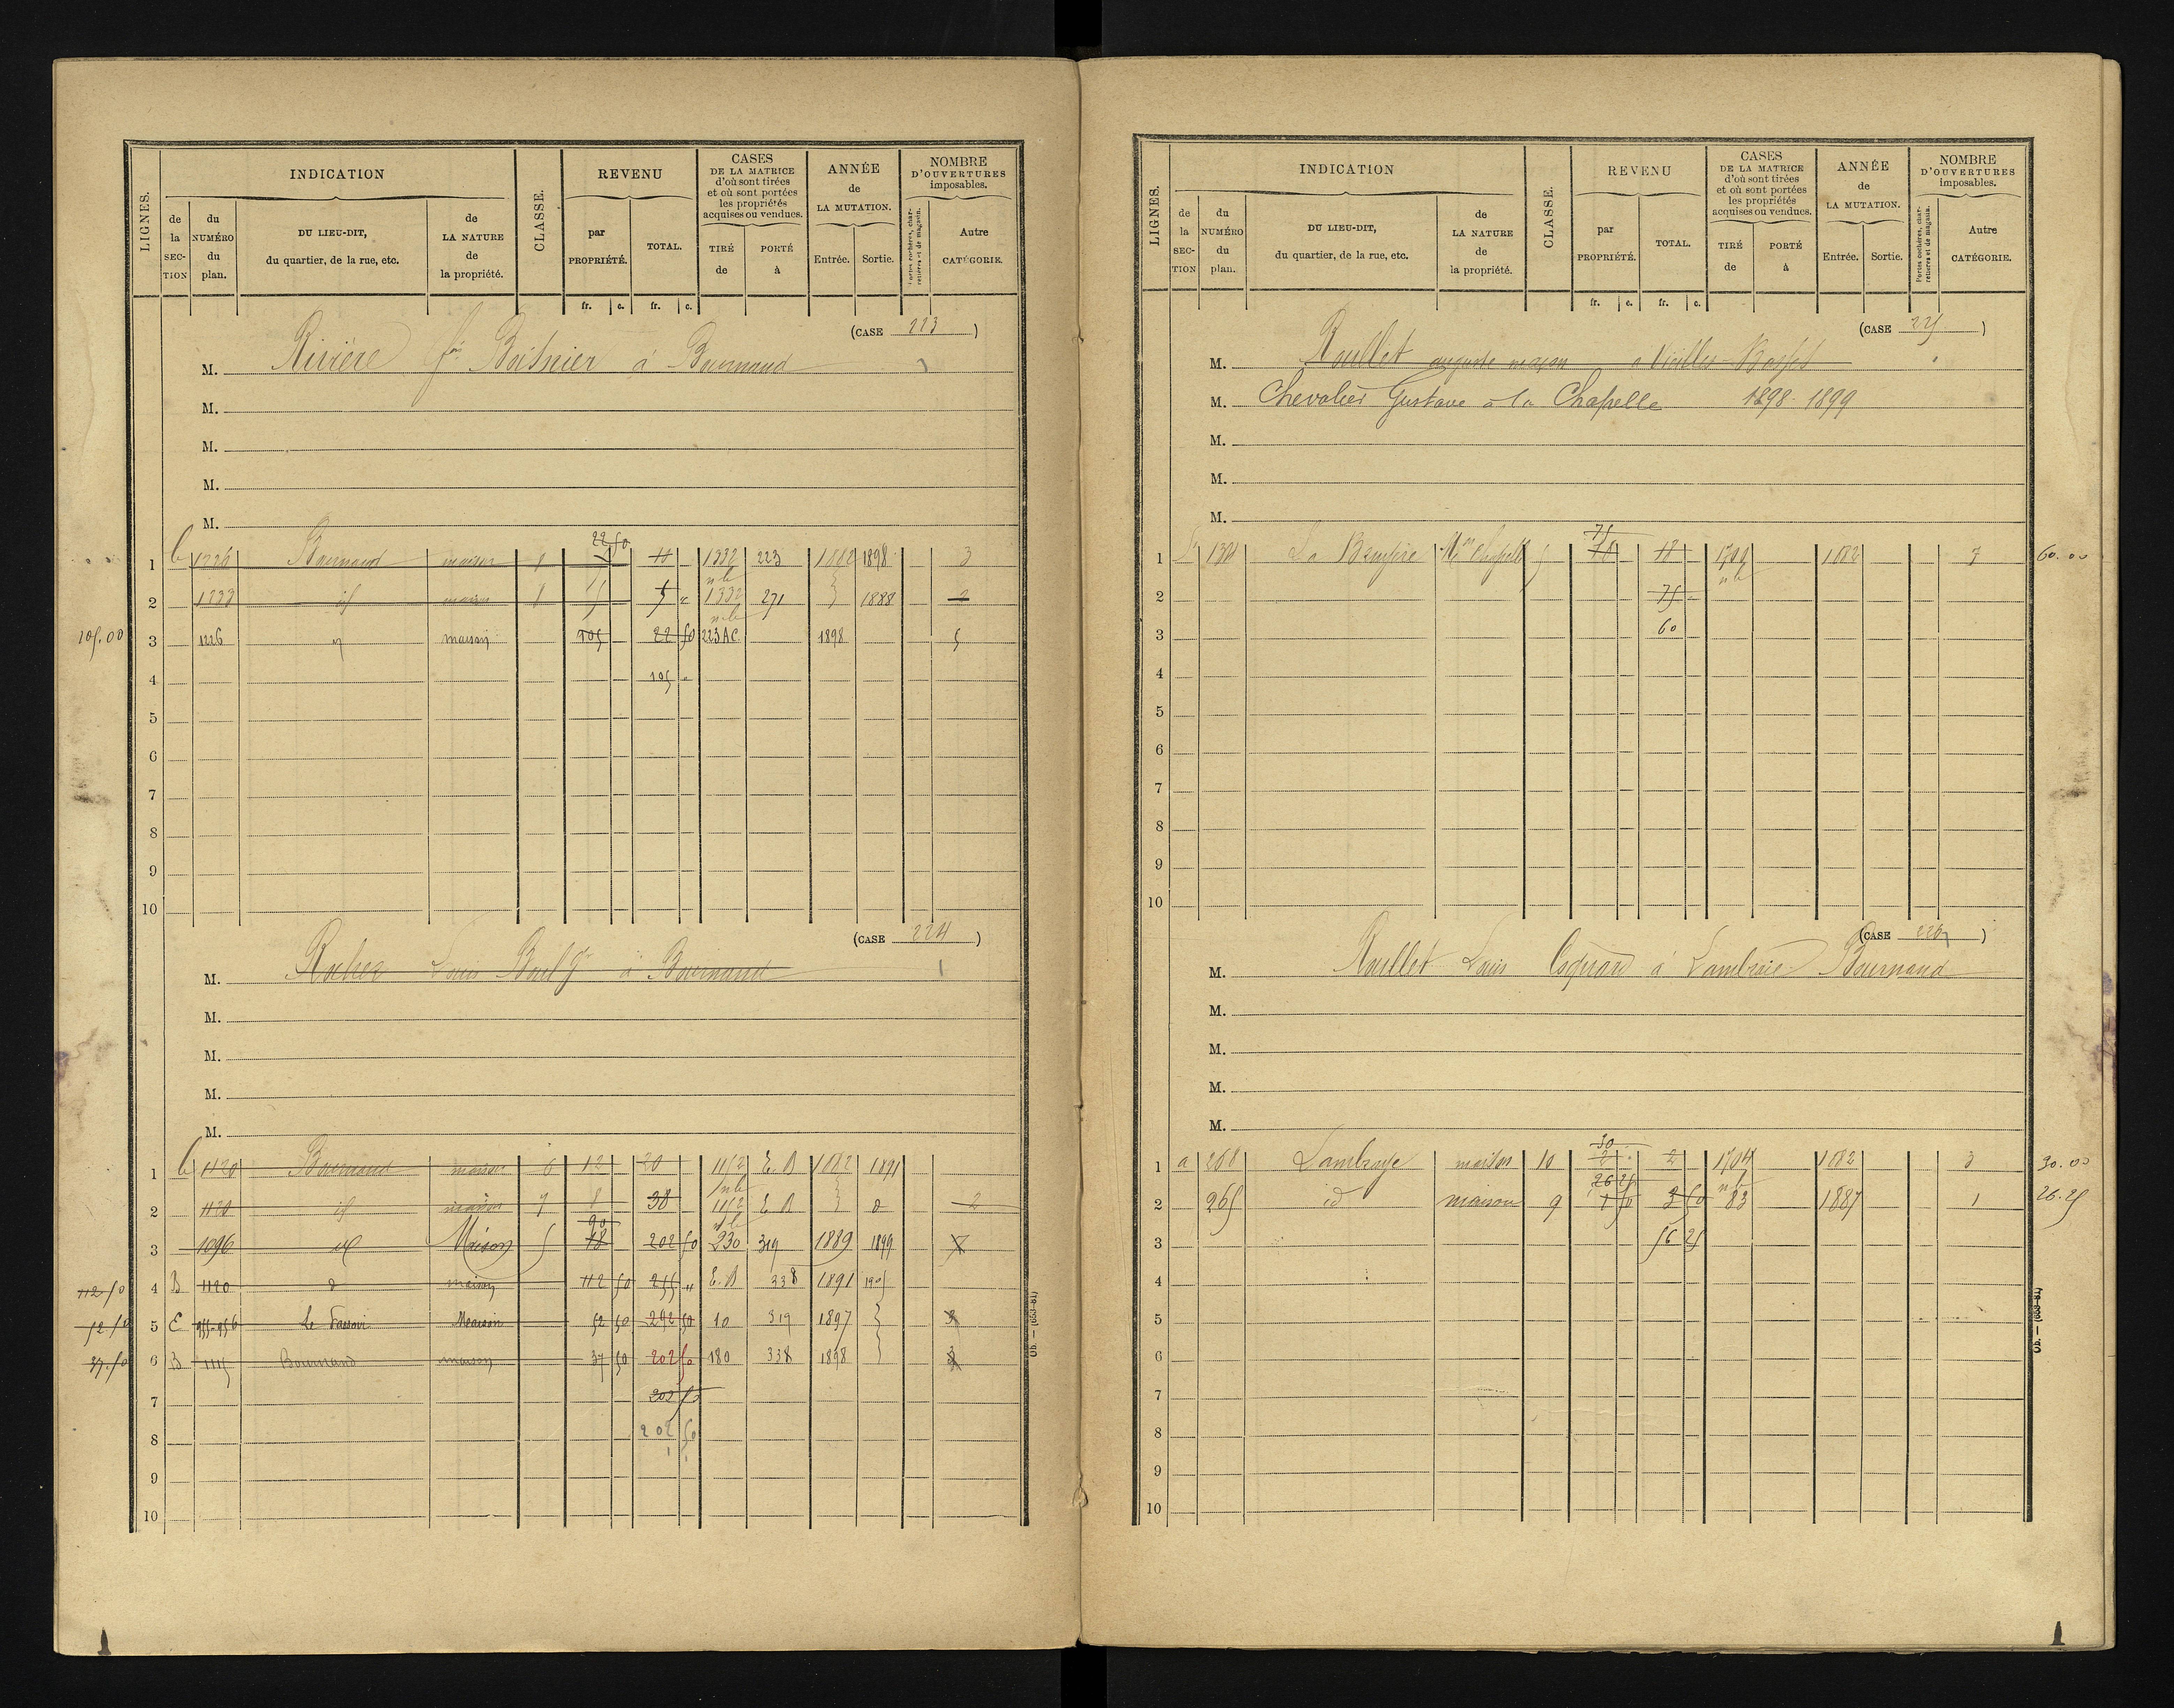 LIGNES.
INDICATION
de la SECTION
du NUMÉRO du plan.
DU LIEU-DIT, du quartier, de la rue, etc.
de LA NATURE de la propriété.
CLASSE.
REVENU
par PROPRIÉTÉ.
TOTAL.
CASES DE LA MATRICE d'où sont tirées et où sont portées les propriétés acquises ou vendues.
TIRÉ de
PORTÉ à
ANNÉE de LA MUTATION.
Entrée.
Sortie.
NOMBRE D'OUVERTURES imposables.
Portes cochères, charretières et de magasin.
Autre CATÉGORIE.
fr. c. fr. c.
(CASE 223)
M. Rivière à Bournand
M.
M.
M.
M.
22 50
1 1226 Bournand maison 8 11 1332 223 1882 1898 3
2 1233 id maison 8 5 5 " 1332 271 1888 2
105.00 3 1226 maison 105 22 50 223 AC 1898 5
4 105 "
5
6
7
8
9
10
(CASE 224)
M. Louis à Bournand
M.
M.
M.
M.
1 1120 Bournand maison 6 12 20 1152 E. B 1882 1891
2 1120 id maison 7 8 38 1152 E B 2
90
3 1096 id Maison 5 18 202 50 230 319 1889 1899
112.50 4 B 1120 d maison 112 50 255 " E. B 338 1891 1905
52.50 5 E 955-956 Maison 52 50 292 50 10 319 1897 3
37.50 6 B 1115 Bournand maison 37 50 202 50 180 338 1898
7 202 50
8 202 50
9
10
Ob. — (653-81)
LIGNES.
INDICATION
de la SECTION
du NUMÉRO du plan.
DU LIEU-DIT, du quartier, de la rue, etc.
de LA NATURE de la propriété.
CLASSE.
REVENU
par PROPRIÉTÉ.
TOTAL.
CASES DE LA MATRICE d'où sont tirées et où sont portées les propriétés acquises ou vendues.
TIRÉ de
PORTÉ à
ANNÉE de LA MUTATION.
Entrée.
Sortie.
NOMBRE D'OUVERTURES imposables.
Portes cochères, charretières et de magasin.
Autre CATÉGORIE.
fr. c. fr. c.
(CASE 225)
M. Roullet auguste maçon
M. Chevalier Gustave à la Chapelle 1898-1899
M.
M.
M.
75
1 La 5 18 1882 7 60.00
2 75
3 60
4
5
6
7
8
9
10
(CASE 226)
M. Roullet Louis à Lambraie Bournand
M.
M.
M.
M.
30
1 a 268 Lambraye maison 10 2 2 1704 1882 3 30.00
26 25
2 265 id maison 9 1 50 3 50 83 1887 1 26.25
3 56 25
4
5
6
7
8
9
10
Ob. — (653-81)